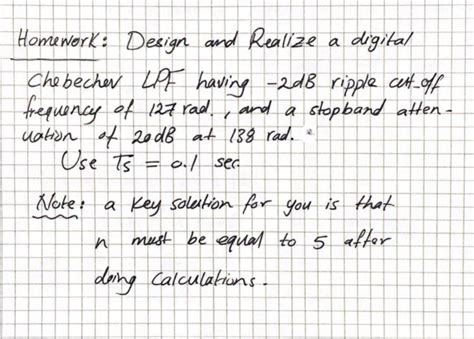 Homework: Design and Realize a digital
Chebechev LPF having -2dB ripple cut-off
frequency of 127 rad., and a stopband atten-
uation of 20dB at 138 rad.
Use Ts = 0.1 sec
Note: a key solution for you is that
n must be equal to 5 after
doing calculations.